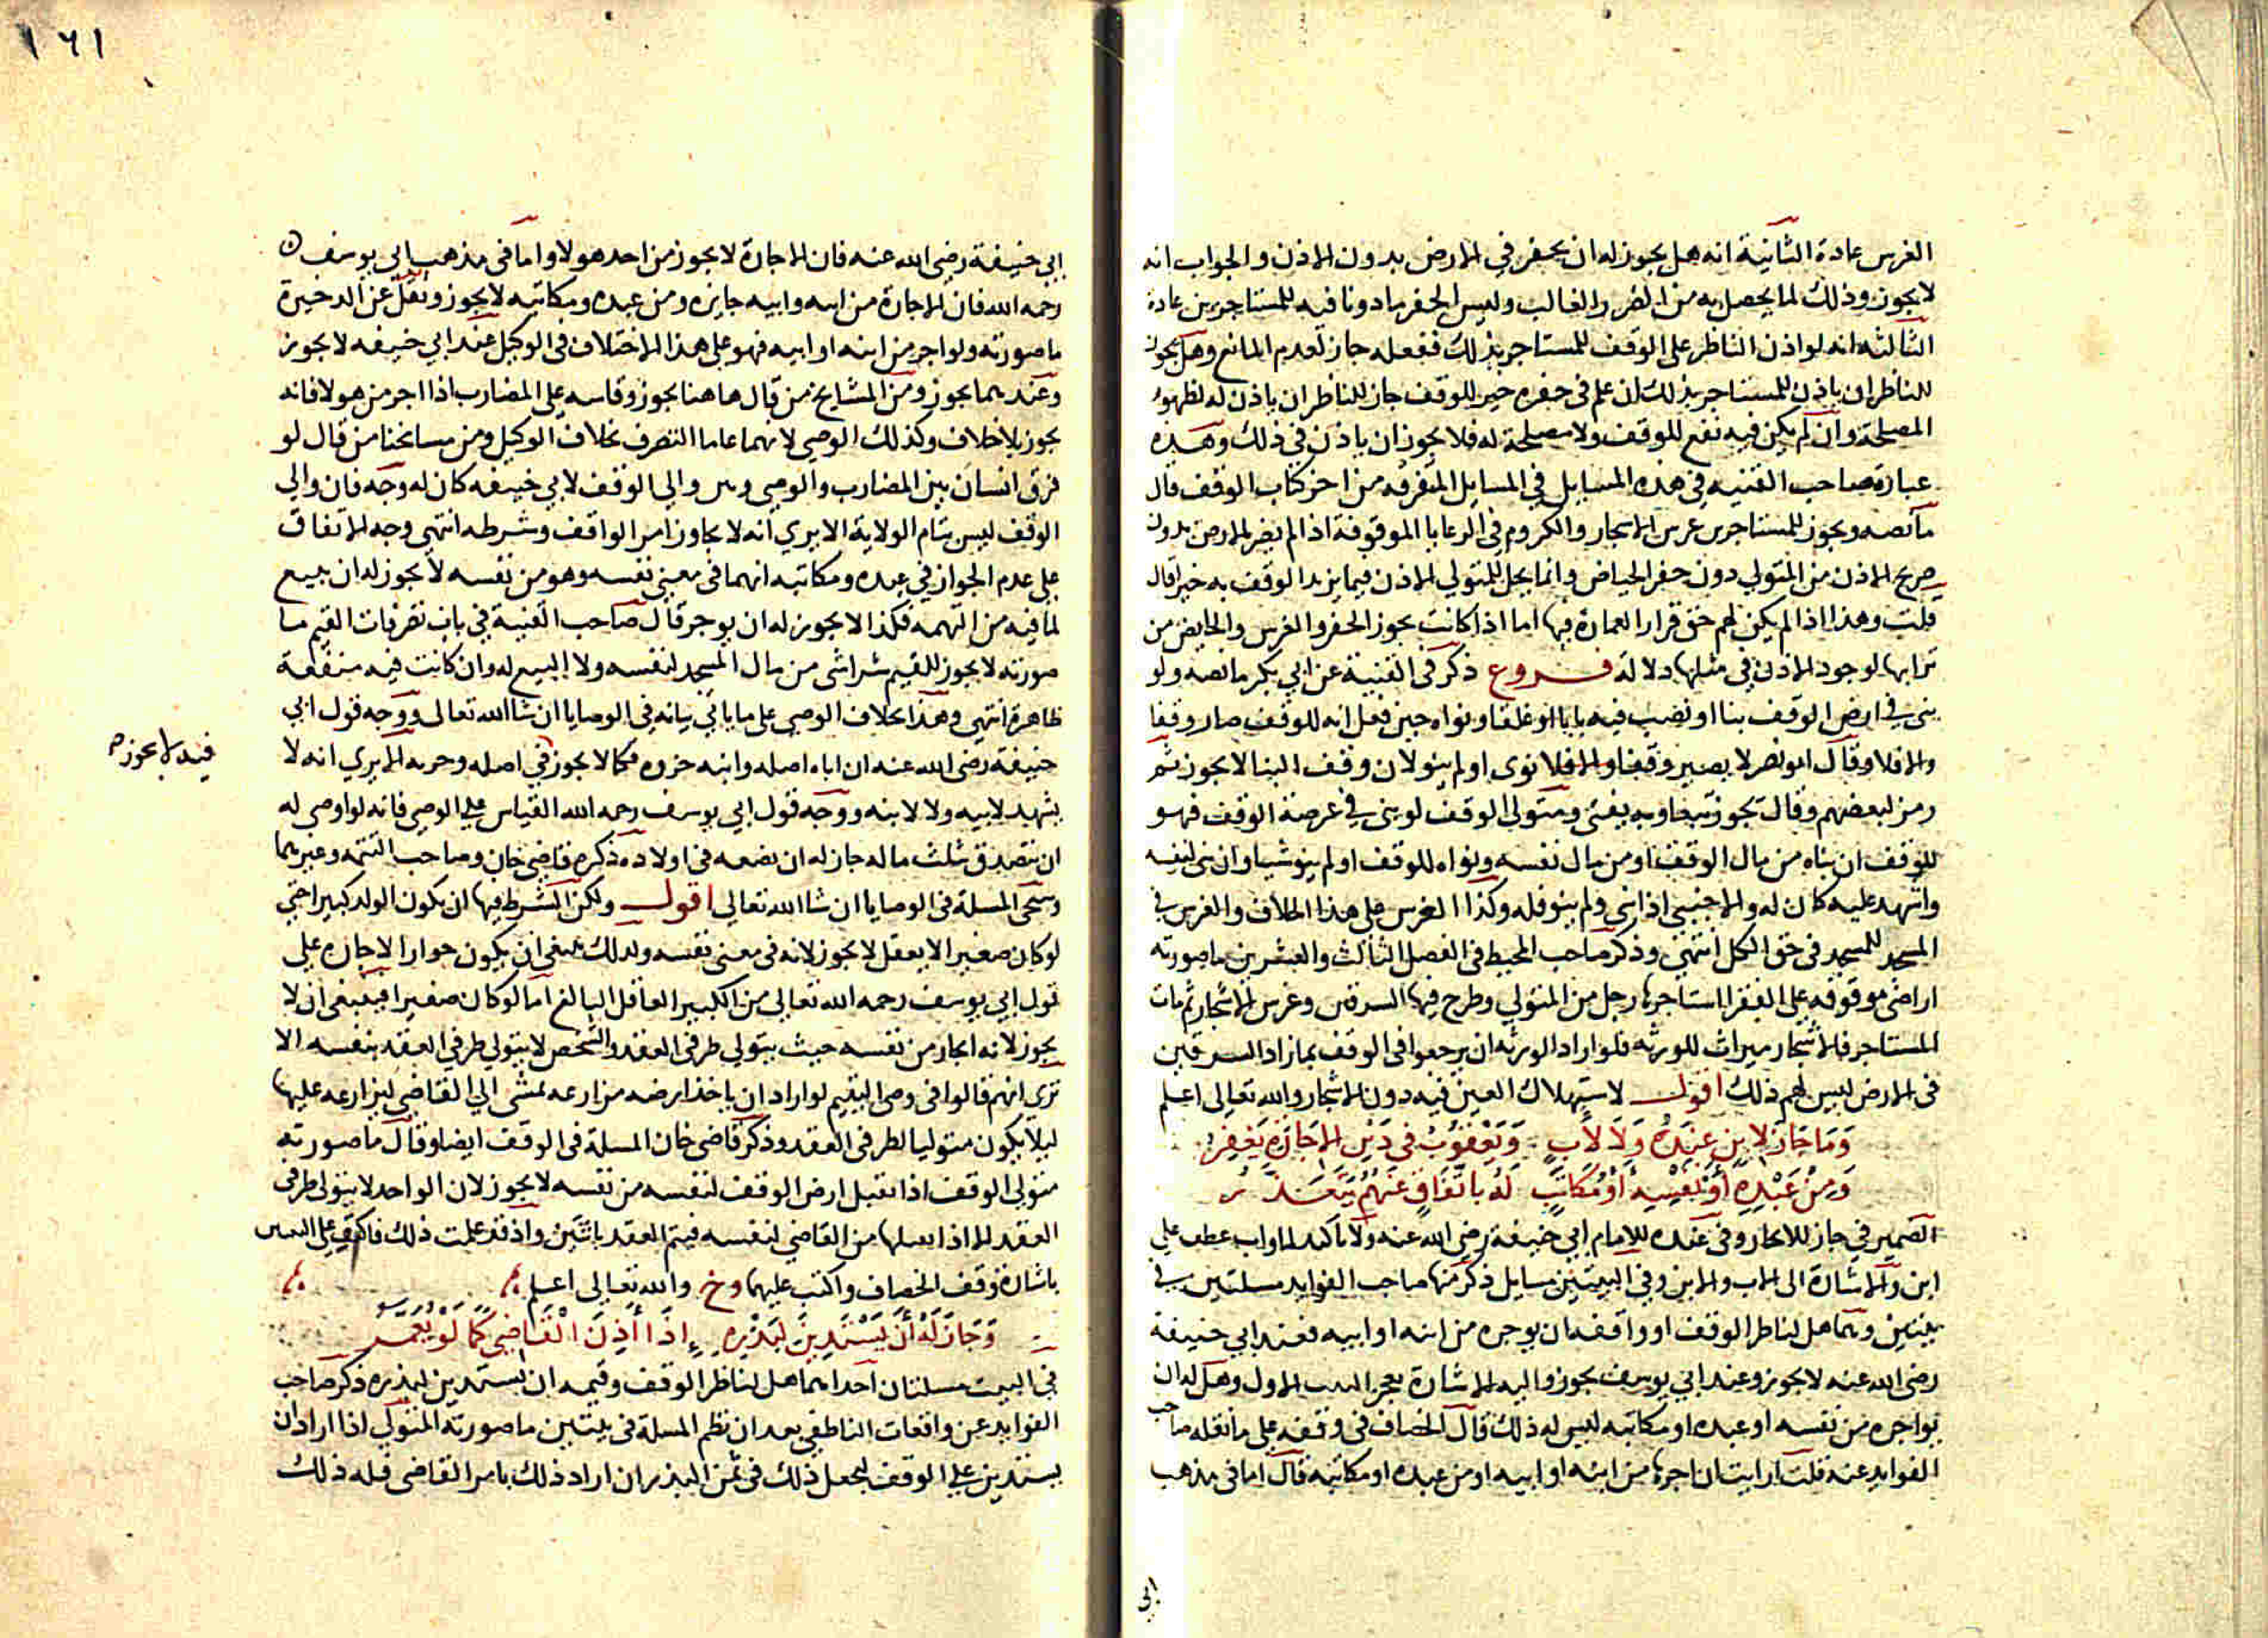 الغرس عادة الثانية انه هل يجوز له ان يحفر في الارض بدون الاذن والجواب انه
لا يجوز وذلك لما يحصل به من الضرر الغالب وليس الحفر مادونا فيه للمستاجرين عادة
الثالثة انه لو اذن الناظر على الوقف للمستاجر بذلك ففعله جاز لعدم المانع وهل يجوز
للناظر ان ياذن للمستاجر بذلك ان علم في حفره خير للوقف جاز للناظر ان ياذن له لظهور
المصلحة وان لم يكن فيه نفع للوقف ولا مصلحة له فلا يجوز ان ياذن في ذلك وهذه
عبارة صاحب القنيه في هذه المسايل في المسايل المتفرقه من اخر كتاب الوقف قال
ما نصه ويجوز للمستاجرين غرس الاشجار والكروم في الموقوفة اذا لم يضر بالارض بدون
صريح الاذن من المتولي دون حفر الحياض وانما يحل للمتولي الاذن فيما يزيد الوقف به خيرا قال
قلت وهذا اذا لم يكن لهم حق قرار العمارة فيها اما اذا كانت يجوز الحفر والغرس والحايض من
ترابها لوجود الاذن في مثلها دلالة فـــروع ذكر في القنية عن ابي بكر ما نصه ولو
بنى في ارض الوقف بنا او نصب فيه بابا او غلقا ونواه حين فعل انه للوقف صار وقفا
والا فلا وقال ابو نصر لا يصير وقفا والا فلا نوى او لم ينو لان وقف البنا لا يجوز ثم
رمز لبعضهم وقال يجوز تبعا وبه يفتى ومتولي الوقف لو بنى في عرصة الوقف فهو
للوقف ان بناه من مال الوقف او من مال نفسه ونواه للوقف او لم ينو شيا وان بنى لنفسه
واشهد عليه كان له والاجنبي اذا بنى ولم ينو فله وكذا الغرس على هذا الخلاف والغرس في
المسجد للمسجد في حق الكل انتهى وذكر صاحب المحيط في الفصل الثالث والعشرين ما صورته
اراضي موقوفه على الفقرا استاجرها رجل من المتولي وطرح فيها السرقين وغرس الاشجار ثم مات
المستاجر فالاشجار ميراث للورثه فلو اراد الورثه ان يرجعوا في الوقف بما زاد السرقين
في الارض ليس لهم ذلك اقول لاستهلاك العين فيه دون الاشجار والله تعالى اعلم
وَمَا جَازَ لِابْنٍ عِنْدَهُ وَلَا لِأَبٍ وَيَعْقُوبُ فِي ذَيْنِ الْإِجَازَةِ
وَمِنْ عَبْدِهِ أَوْ نَفْسِهِ أَوْ مُكَاتَبٍ لَهُ بِاتِّفَاقٍ عَنْهُمُ
الضمير في جاز للايجار وفي عنده للامام ابي حنيفة رضي الله عنه ولا تاكيد لما واب عطف على
ابن والاشارة الى الاب والابن وفي البيتين مسايل ذكر منها صاحب الفوايد مسلتين في
بيتين وهما هل لناظر الوقف او واقفه ان يوجره من ابنه او ابيه فعند ابي حنيفة
رضي الله عنه لا يجوز وعند ابي يوسف يجوز واليه الاشارة بعجز البيت الاول وهل له ان
يواجره من نفسه او عبده او مكاتبه ليس له ذلك قال الخصاف في وقفه على ما نقله صاحب
الفوايد عنه قلت ارايت ان اجرها من ابنه او ابيه او من عبده او مكاتبه قال اما في مذهب
ابي
١٦١
ابي حنيفة رضي الله عنه فان الاجارة لا يجوز من احد هولا واما في مذهب ابي يوسف
رحمه الله فان الاجارة من ابنه وابيه جايزه ومن عبده ومكاتبه لا يجوز ونقل عن الدخيرة
ما صورته ولو اجر من ابنه او ابيه فهو على هذا الاختلاف في الوكيل عند ابي حنيفه لا يجوز
وعندهما يجوز ومن المشايخ من قال هاهنا يجوز وقاسه على المضارب اذا اجر من هولا فانه
يجوز بلا خلاف وكذلك الوصي لانهما عاما التصرف بخلاف الوكيل ومن مسايخنا من قال لو
فرق انسان بين المضارب والوصي وبين والي الوقف لابي حنيفه كان له وجه فان والي
الوقف ليس بتام الولاية الا يري انه لا يجاوز امر الواقف وشرطه انتهى وجه الاتفاق
على عدم الجواز في عبده ومكاتبه انهما في معنى نفسه وهو من نفسه لا يجوز له ان يبيع
لما فيه من التهمه فكذا لا يجوز له ان يوجر قال صاحب القنية في باب تصرفات القيم ما
صورته لا يجوز للقيم شرا شى من مال المسجد لنفسه ولا البيع له وان كانت فيه منفعة
ظاهرة انتهى وهذا بخلاف الوصي على ما ياتي بيانه في الوصايا ان شا الله تعالى ووجه قول ابي
حنيفة رضي الله عنه ان اباه اصله وابنه جزوه فكما لا يجوز في اصله وجزءه الا يري انه لا
يشهد لابيه ولا لابنه ووجه قول ابي يوسف رحمه الله القياس على الوصي فانه لو اوصى له
ان يتصدق بثلث ماله جاز له ان يضعه في اولاده ذكره قاضي خان وصاحب التتمه وغيرهما
وستجي المسلة في الوصايا ان شا الله تعالى اقول ولكن الشرط فيها ان يكون الولد كبيرا حتى
لو كان صغيرا لا يعقل لا يجوز لانه في معنى نفسه ولذلك ينبغي ان يكون جواز الاجاره على
قول ابي يوسف رحمه الله تعالى من الكبير العاقل البالغ اما لو كان صغيرا فينبغي ان لا
يجوز لانه ايجار من نفسه حيث يتولى طرفى العقد والشخص لا يتولى طرفي العقد بنفسه الا
تري انهم قالوا في وصي اليتيم لو اراد ان ياخذ ارضه مزارعه لمشى الى القاضي ليزارعه عليها
ليلا يكون متوليا لطرفي العقد وذكر قاضي خان المسلة في الوقف ايضا وقال ما صورته
متولى الوقف اذا تقبل ارض الوقف لنفسه من نفسه لا يجوز لان الواحد لا يتولى طرفى
العقد الا اذا تقبلها من القاضي لنفسه فيتم العقد باثنين واذ قد علمت ذلك فاكتف على
باشارة وقف الخصاف واكتب عليهما وخ والله تعالى اعلم
وَجَازَ لَهُ أَنْ يَسْتَدِينَ لِبَذْرِهِ إِذَا أَذِنَ الْقَاضِي كَمَا لَوْ يُعَمَّرُ
في البيت مسلتان احداهما هل لناظر الوقف وقيمه ان يستدين لبذره ذكر صاحب
الفوايد عن واقعات الناطفي بعد ان نظم المسلة في بيتين ما صورته المتولي اذا اراد ان
يستدين على الوقف ليجعل ذلك في ثمن البذر ان اراد ذلك بامر القاضي فله ذلك